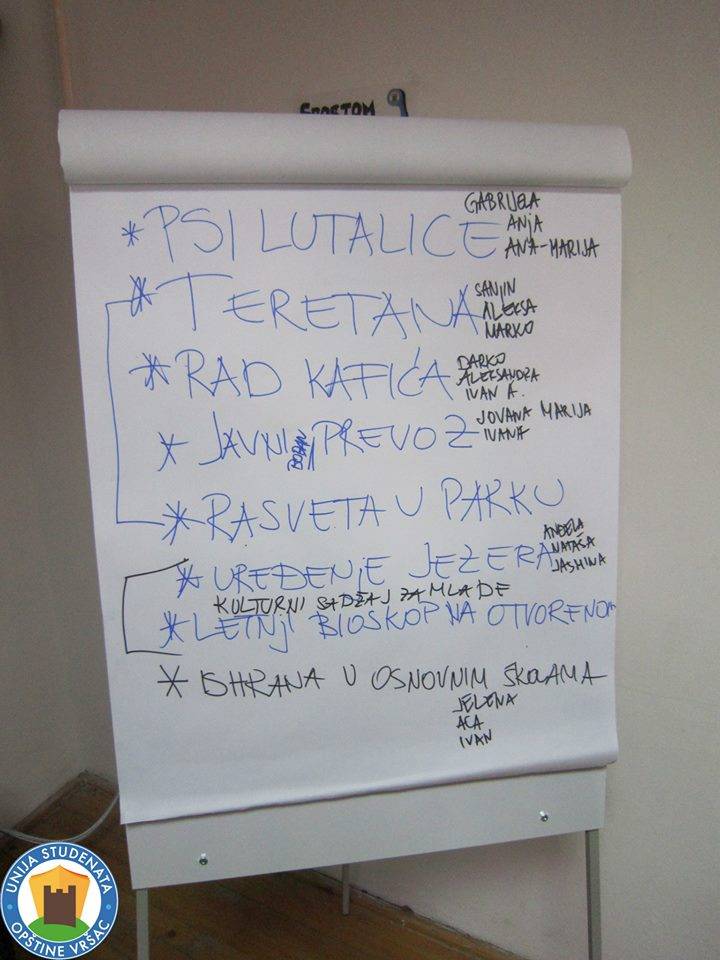 SPORTOM
* PSI LUTALICE
GABRIJELA
ANJA
ANA-MARIJA
* TERETANA
SANJIN
ALEKSA
MARKO
* RAD KAFIĆA
DARKO
ALEKSANDRA
IVAN A.
* JAVNI PREVOZ
JOVANA MARIJA
IVANA
* RASVETA U PARKU
* UREĐENJE JEZERA
ANĐELA
NATAŠA
JASMINA
KULTURNI SADŽAJ ZA MLADE
* LETNJI BIOSKOP NA OTVORENOM
* ISHRANA U OSNOVNIM ŠKOLAMA
JELENA
ACA
IVAN
UNIJA STUDENATA
OPŠTINE VRŠAC